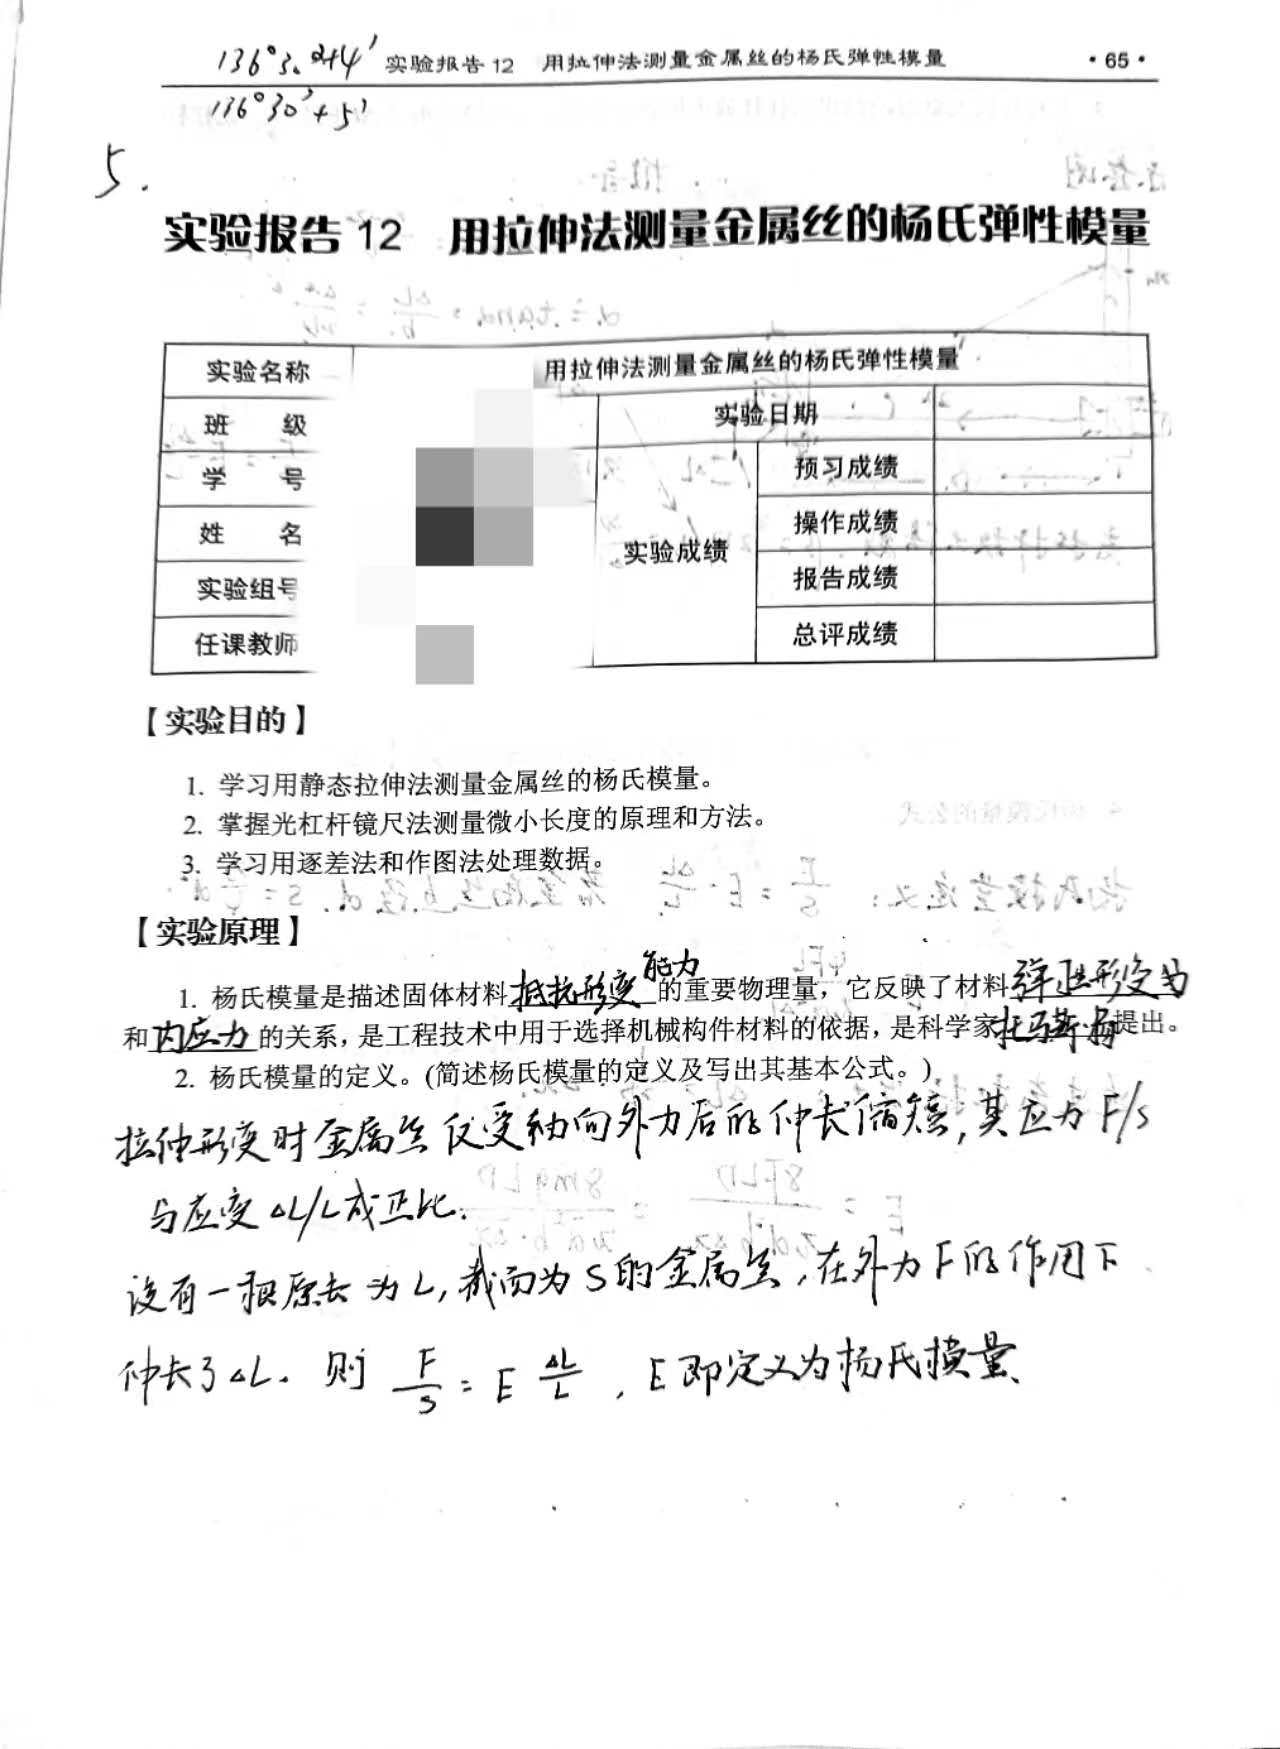 136°30'+4' 实验报告 12 用拉伸法测量金属丝的杨氏弹性模量 ·65·
136°30'+5'
5.
实验报告 12 用拉伸法测量金属丝的杨氏弹性模量
实验名称 用拉伸法测量金属丝的杨氏弹性模量
班 级 实验日期
学 号 预习成绩
姓 名 实验成绩 操作成绩
实验组号 报告成绩
任课教师 总评成绩
【实验目的】
1. 学习用静态拉伸法测量金属丝的杨氏模量。
2. 掌握光杠杆镜尺法测量微小长度的原理和方法。
3. 学习用逐差法和作图法处理数据。
【实验原理】
1. 杨氏模量是描述固体材料抵抗形变能力的重要物理量，它反映了材料弹性形变
和内应力的关系，是工程技术中用于选择机械构件材料的依据，是科学家托马斯·杨提出。
2. 杨氏模量的定义。(简述杨氏模量的定义及写出其基本公式。)
拉伸形变时金属丝仅受轴向外力后的伸长缩短，其应力 F/S
与应变 ΔL/L 成正比.
设有一根原长为 L, 截面为 S 的金属丝，在外力 F 的作用下
伸长了 ΔL. 则 F/S = E ΔL/L , E 即定义为杨氏模量、